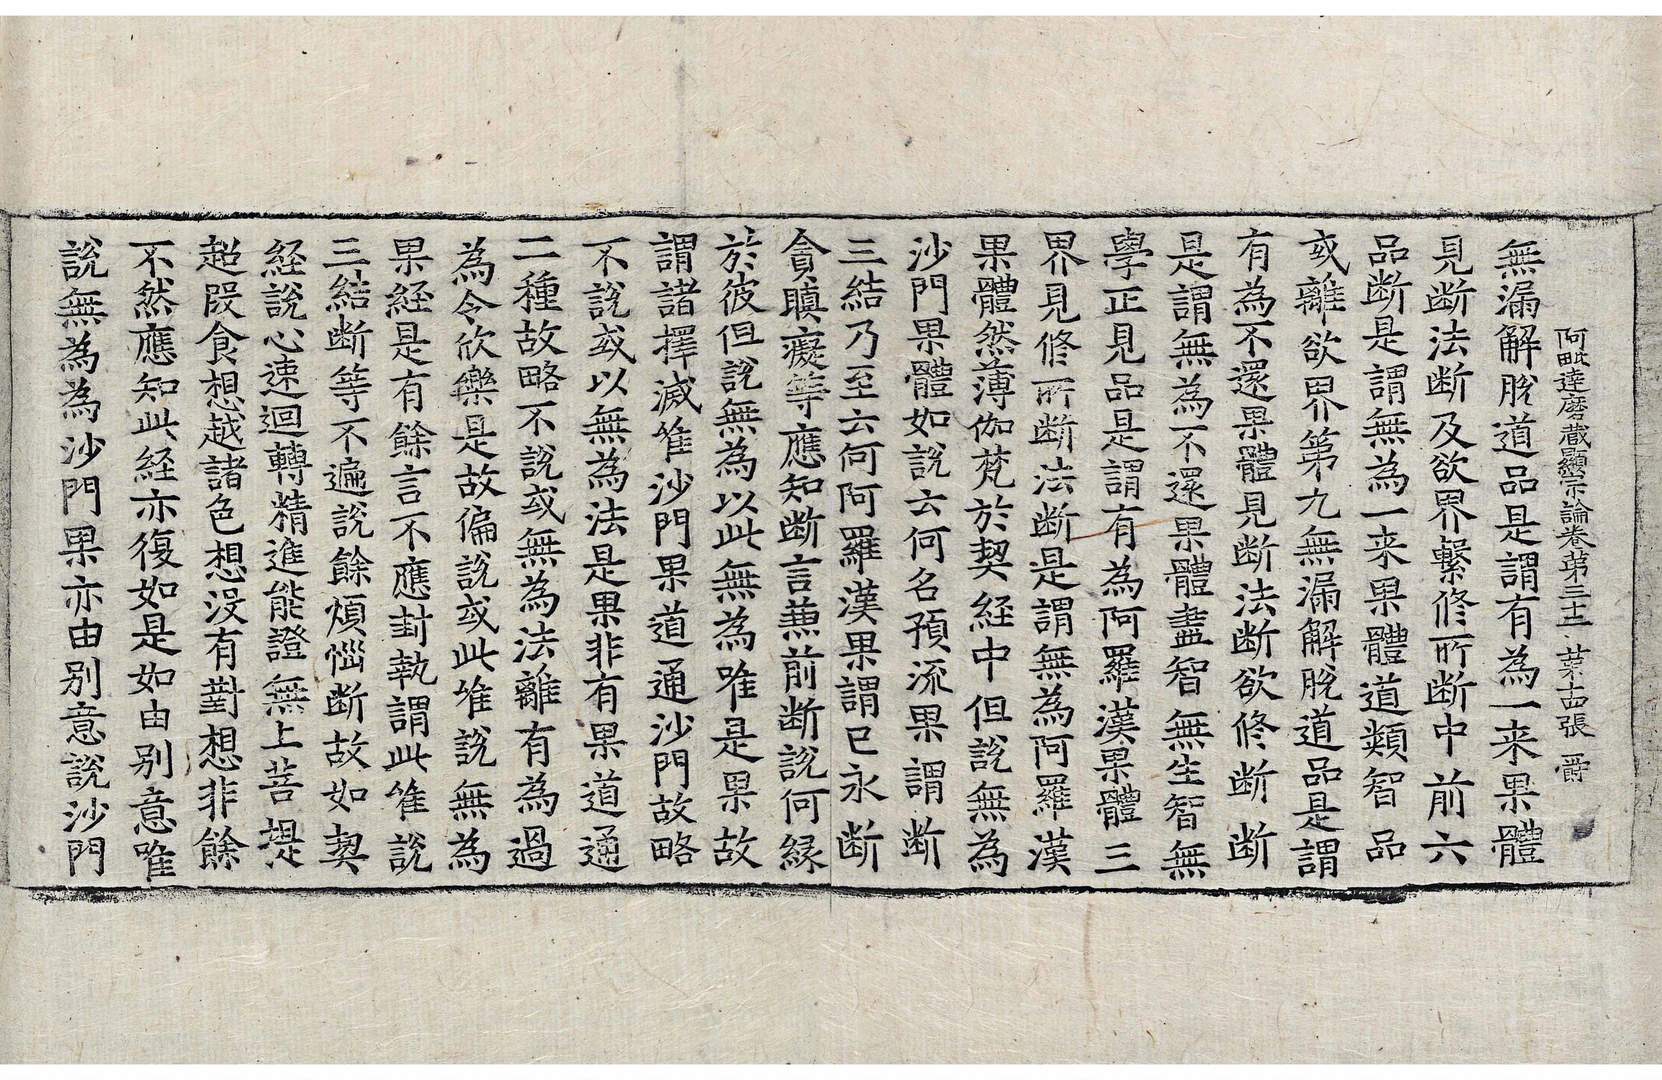 阿毗達磨蔵顯宗論卷第三十二 苐十四張 爵
無漏解脫道品是謂有為一来果體
見断法断及欲界繫修所断中前六
品断是謂無為一来果體道類智品
或離欲界第九無漏解脫道品是謂
有為不還果體見断法断欲修断断
是謂無為不還果體盡智無生智無
學正見品是謂有為阿羅漢果體三
界見修所断法断是謂無為阿羅漢
果體然薄伽梵於契経中但說無為
沙門果體如說云何名預流果謂断
三結乃至云何阿羅漢果謂已永断
貪瞋癡等應知断言蕪前断說何緣
於彼但說無為以此無為唯是果故
謂諸擇滅唯沙門果道通沙門故略
不說或以無為法是果非有果道通
二種故略不說或無為法離有為過
為令欣樂是故偏說或此唯說無為
果経是有餘言不應封執謂此唯說
三結断等不遍說餘煩惱断故如契
経說心速迴轉精進能證無上菩提
超段食想越諸色想没有對想非餘
不然應知此経亦復如是如由别意唯
說無為為沙門果亦由别意說沙門